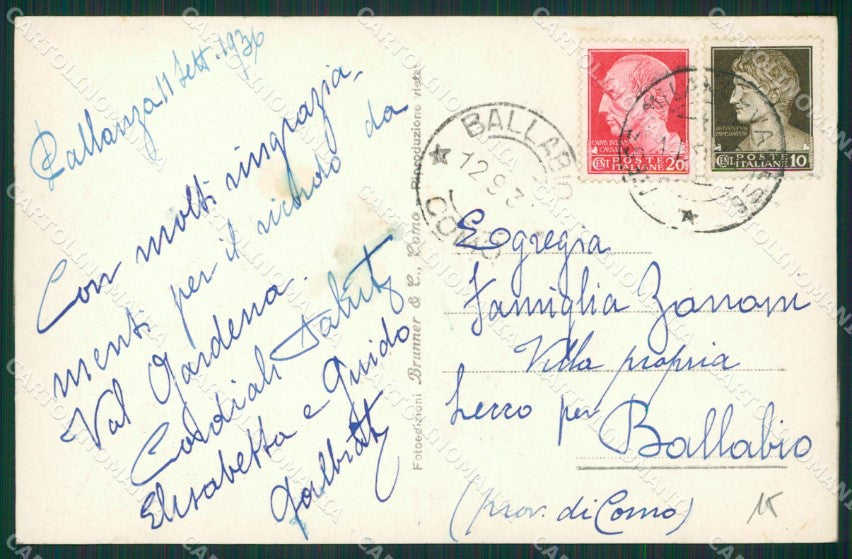 Pallanza 11 Sett. 1936
Con molti ringrazia-
menti per il ricordo da
Val Gardena.
Cordiali saluti
Elisabetta e Guido
Galbiati
Fotoedizioni Brunner & C., Como - Riproduzione vietata
BALLABIO
12 9 3
COMO
POSTE
ITALIANE
CENT 20
POSTE
ITALIANE
CENT 10
Egregia
Famiglia Zanoni
Villa propria
Lecco per
Ballabio
(Prov. di Como)
15
CARTOLINOMANIA